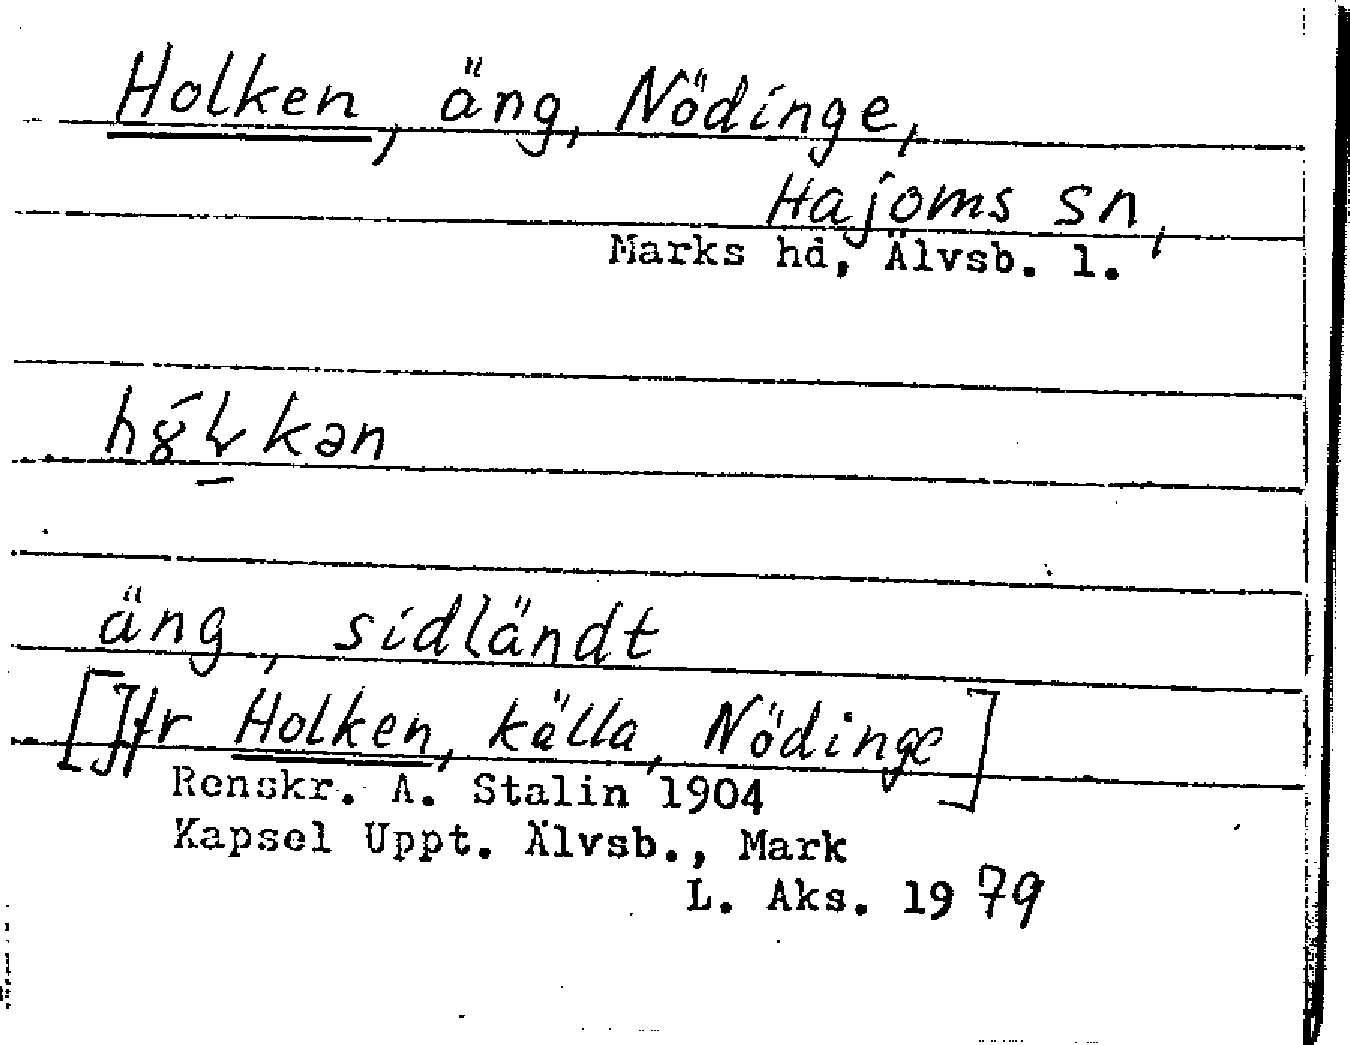 Holken, äng, Nödinge,
Hajoms sn,
Marks hd, Älvsb. l.
äng, sidländt
[Jfr Holken, källa, Nödinge]
Renskr. A. Stalin 1904
Kapsel Uppt. Älvsb., Mark
L. Aks. 1979